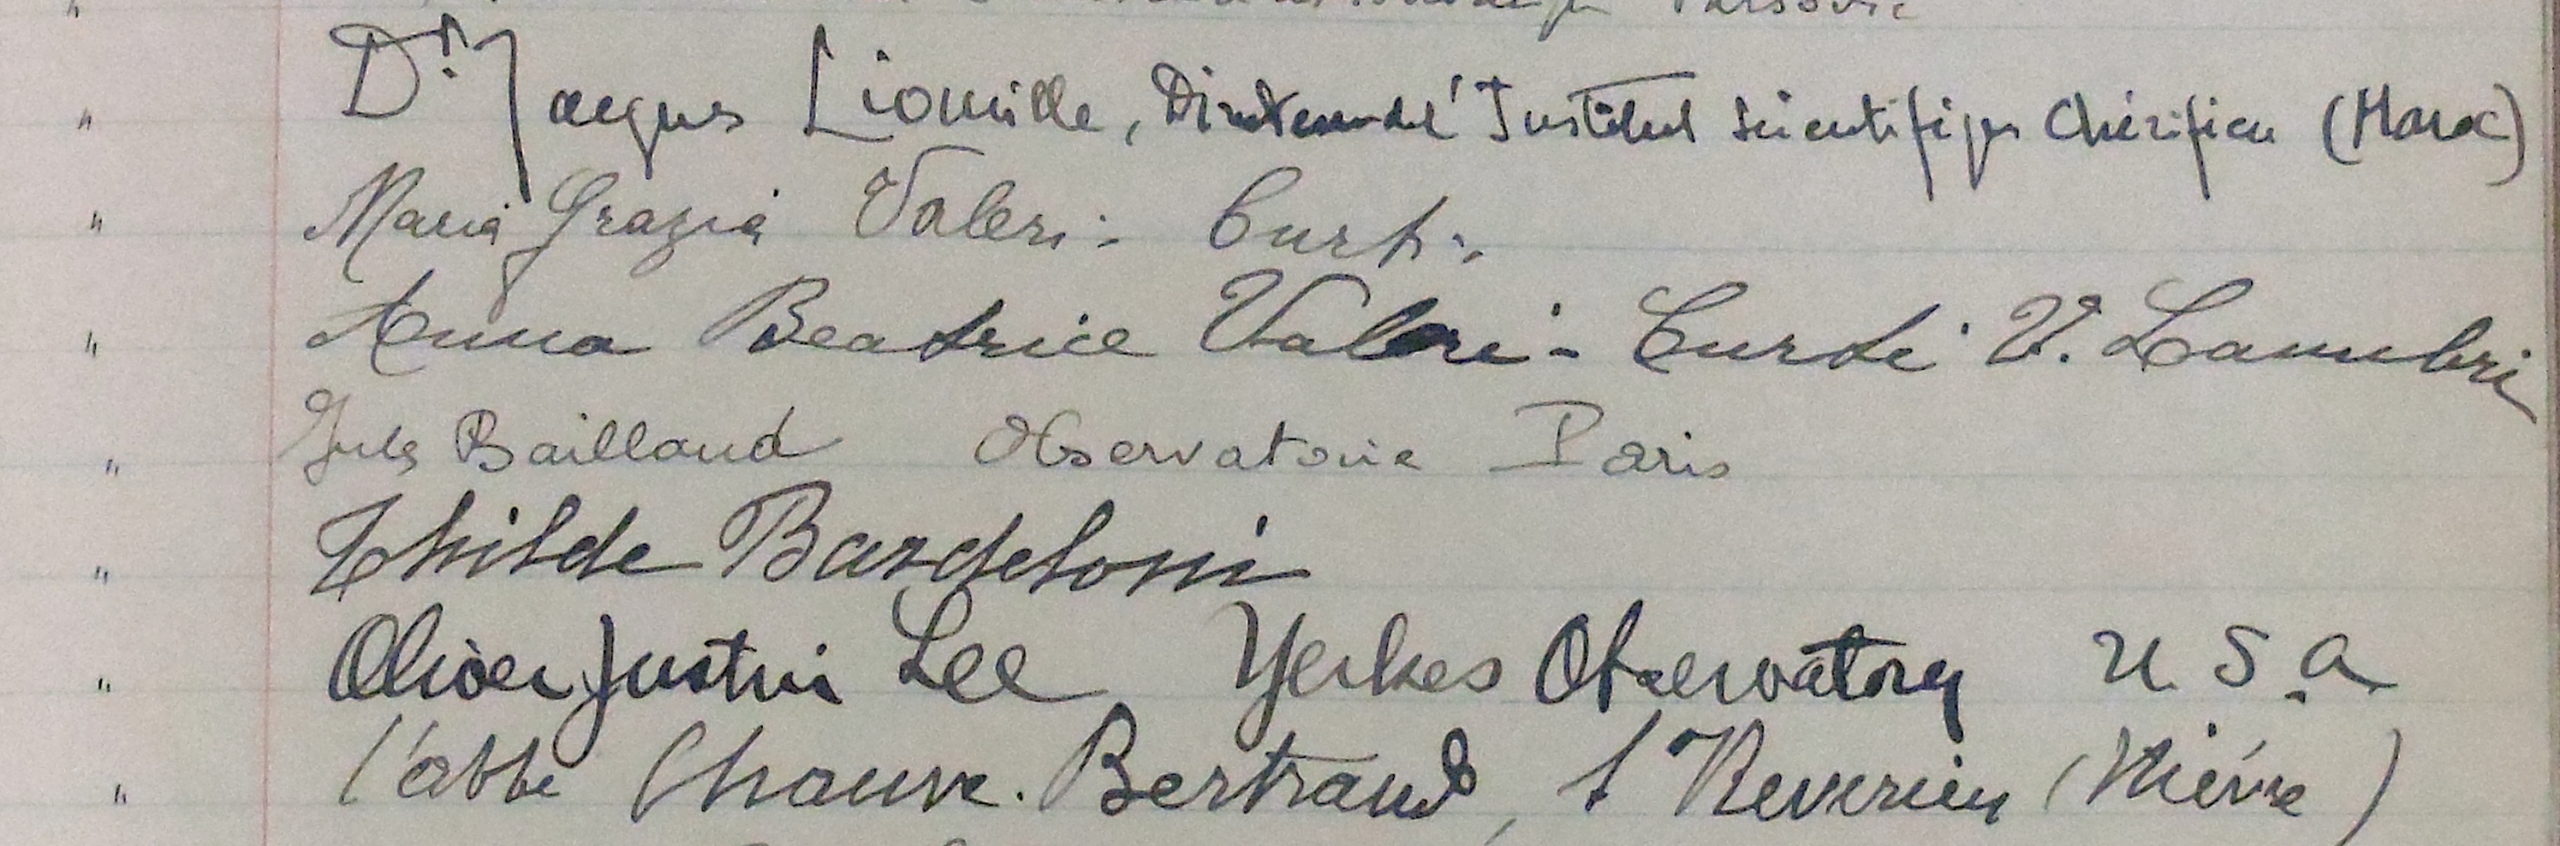 " Dr. Jacques Liouville, Directeur de l'Institut Scientifique Chérifien (Maroc)
" Maria Grazia Valeri - Curti
" Anna Beatrice Valeri - Curti V. Lambri
" Jules Baillaud Observatoire Paris
" Thilde Bardeloni
" Oliver Justin Lee Yerkes Observatory U.S.A.
" l'abbé Chauve-Bertrand, St Révérien (Nièvre)